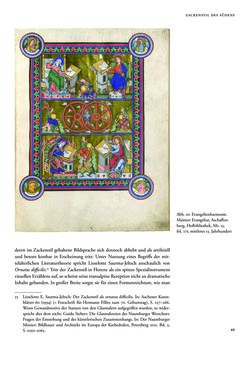 ZACKENSTIL DES SÜDENS
Abb. 10: Evangelienharmonie.
Mainzer Evangeliar, Aschaffen-
burg, Hofbibliothek, Ms. 13,
fol. 17v, mittleres 13. Jahrhundert
deren im Zackenstil gehaltene Bildsprache sich dennoch abhebt und als artifiziell
und bestens kostbar in Erscheinung tritt: Unter Nutzung eines Begriffs der mit-
telalterlichen Literaturtheorie spricht Lieselotte Saurma-Jeltsch anschaulich von
Ornatus difficilis.
Tritt der Zackenstil in Florenz als ein spitzes Spezialinstrument
visuellen Erzählens auf, so scheint in einer transalpine Rezeption nicht an dramatische
Inhalte gebunden. In großer Breite sorgte sie für einen Formenreichtum, wie man
Lieselotte E. Saurma-Jeltsch: Der Zackenstil als ornatus difficilis. In: Aachener Kunst-
blätter
Festschrift für Hermann Fillitz zum 70. Geburtstag
S. 257–266.
Wenn Gewandmotive der Stifter
spricht dies nicht
Die Glasmalereien der Naumburger Westchor:
Fragen der Entstehung und der künstlerischen Zusammenhänge. In: Der Naumburger
Meister. Bildhauer und Architekt im Europa der Kathedralen, Petersberg 2011, Bd. 2,
49